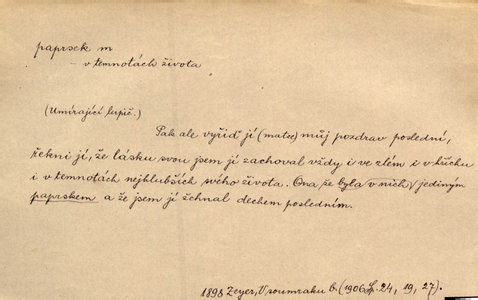 paprsek m
– v temnotách života
(Umírající lupič.)
Pak ale vyřiď jí (matce) můj pozdrav poslední,
řekni jí, že lásku svou jsem jí zachoval vždy i ve zlém i v hříchu
i v temnotách nejhlubších svého života. Ona že byla v nich jediným
paprskem a že jsem jí žehnal dechem posledním.
1898 Zeyer, V soumraku b. (1906, 24, 19, 27).